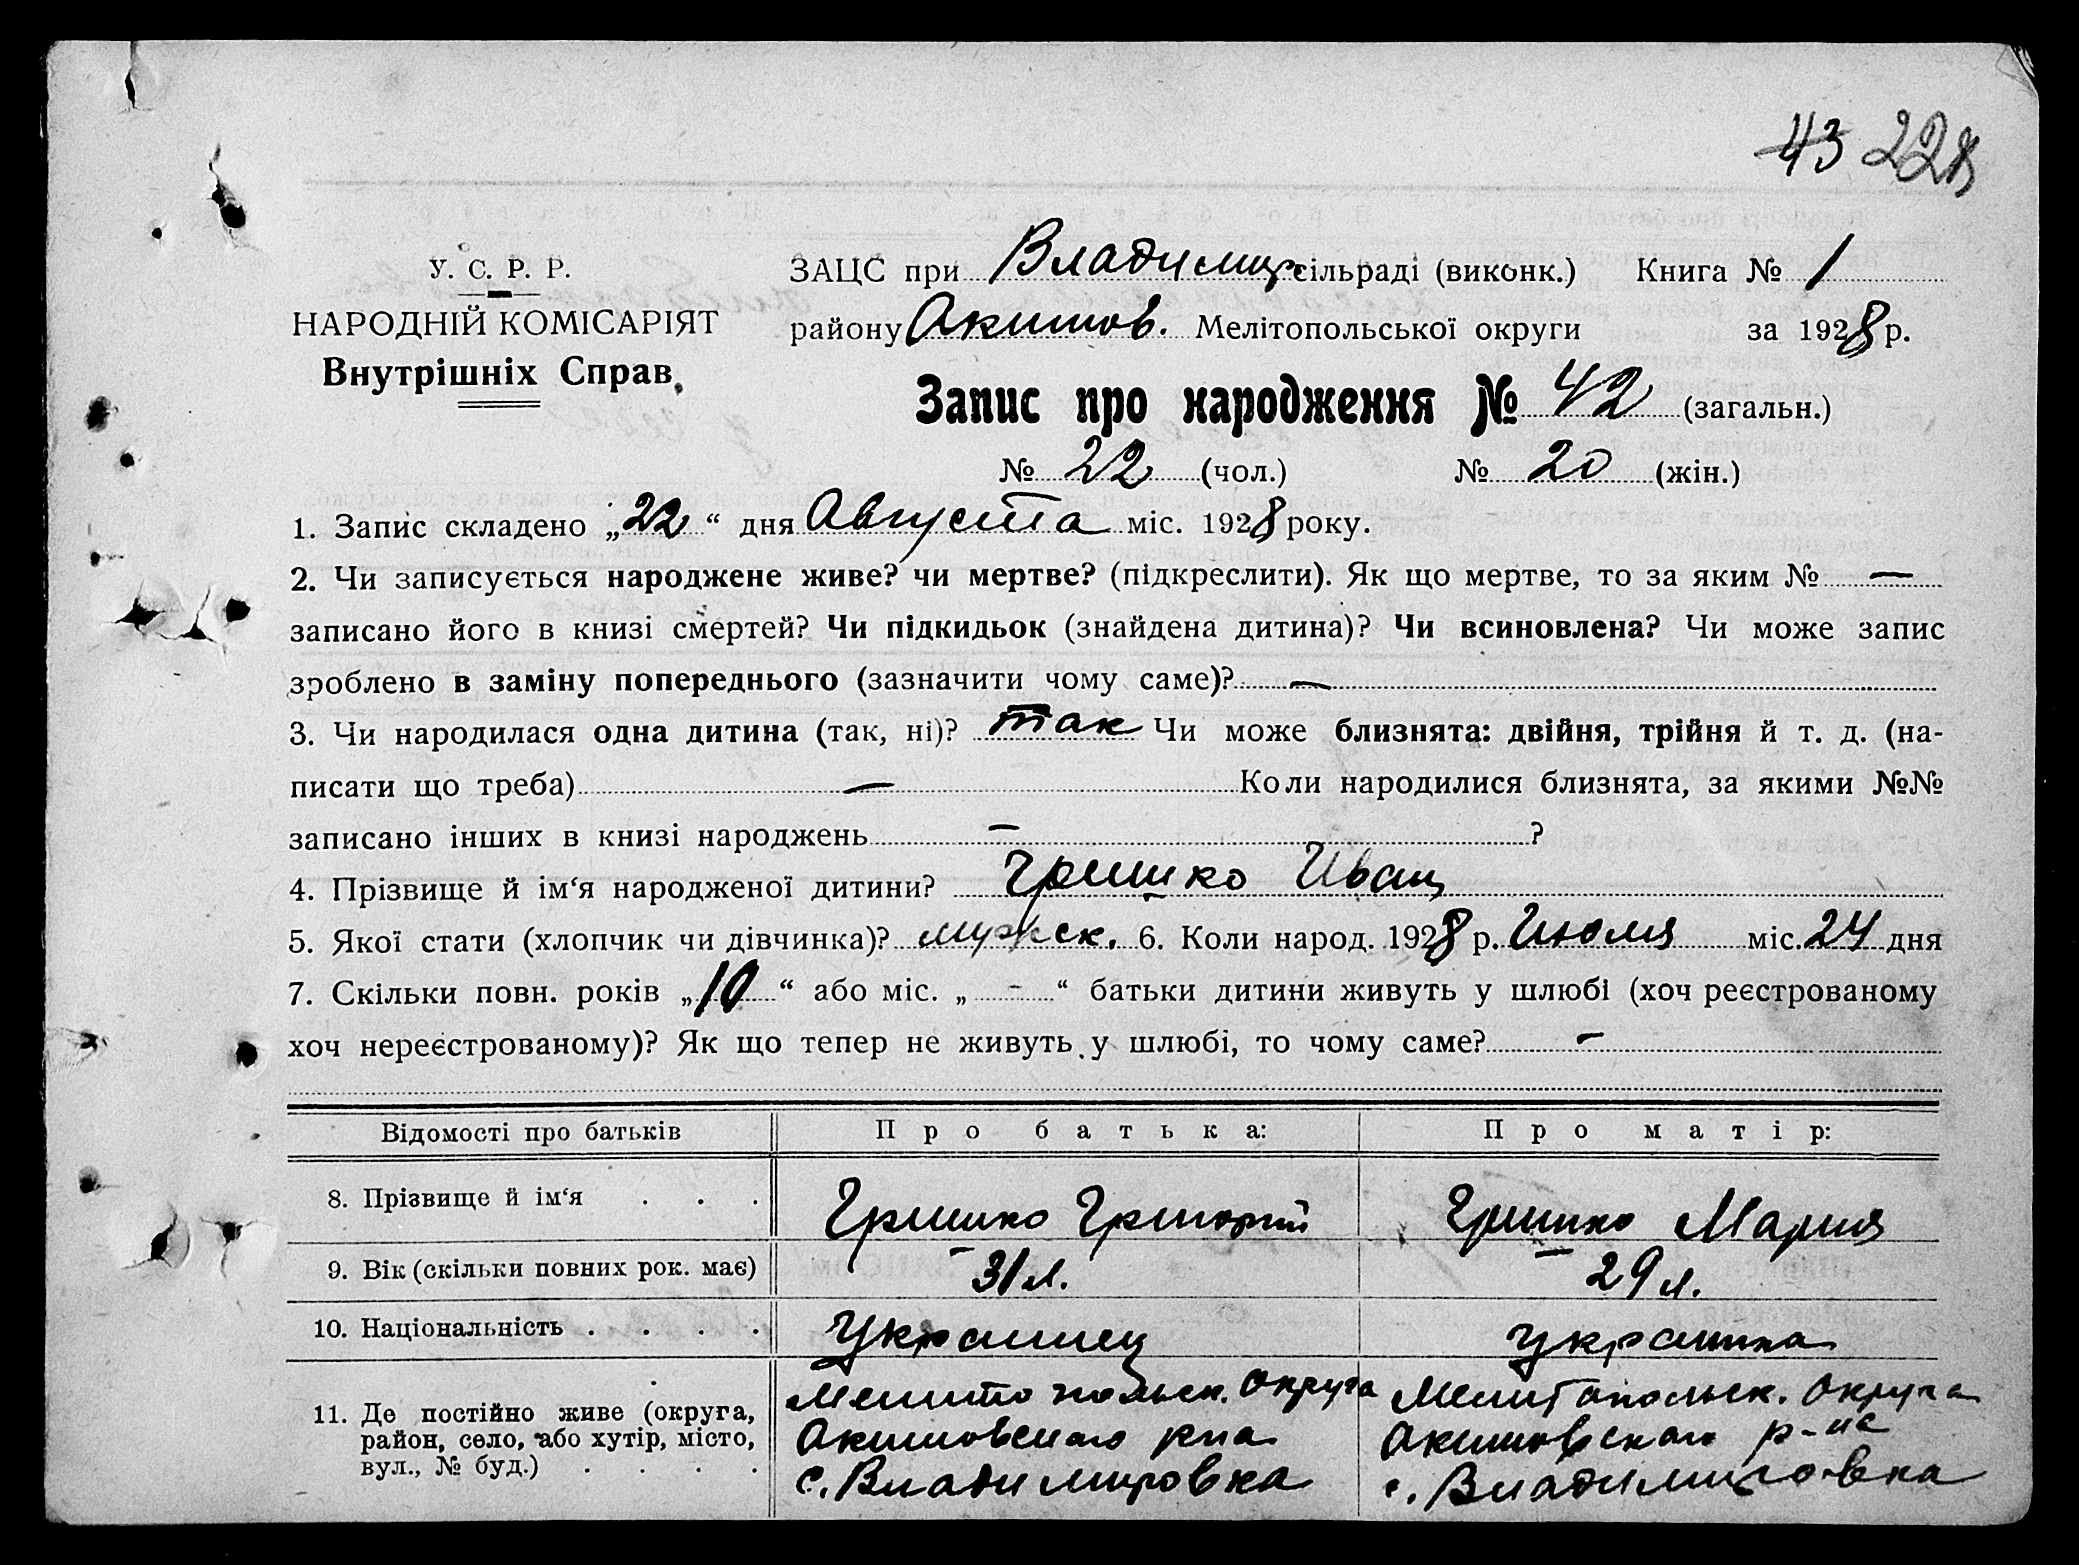 43 228
У. С. Р. Р.
НАРОДНІЙ КОМІСАРІЯТ
Внутрішніх Справ.
ЗАЦС при Владимир сільраді (виконк.) Книга № 1
району Акимов. Мелітопольської округи за 1928 р.
Запис про народження № 42 (загальн.)
№ 22 (чол.) № 20 (жін.)
1. Запис складено „22“ дня Августа міс. 1928 року.
2. Чи записується народжене живе? чи мертве? (підкреслити). Як що мертве, то за яким № —
записано його в книзі смертей? Чи підкидьок (знайдена дитина)? Чи всиновлена? Чи може запис
зроблено в заміну попереднього (зазначити чому саме)? —
3. Чи народилася одна дитина (так, ні)? так Чи може близнята: двійня, трійня й т. д. (на-
писати що треба) — Коли народилися близнята, за якими №№
записано інших в книзі народжень — ?
4. Прізвище й ім‘я народженої дитини? Гришко Иван
5. Якої стати (хлопчик чи дівчинка)? мужск. 6. Коли народ. 1928 р. Июля міс. 24 дня
7. Скільки повн. років „10“ або міс. „-“ батьки дитини живуть у шлюбі (хоч реєстрованому
хоч нереєстрованому)? Як що тепер не живуть у шлюбі, то чому саме? —
Відомості про батьків Про батька: Про матір:
8. Прізвище й ім‘я . . . Гришко Григорий Гришко Мария
9. Вік (скільки повних рок. має) 31 л. 29 л.
10. Національність . . . . Украинец украинка
11. Де постійно живе (округа, Мелитопольск. округа Мелитопольск. округа
район, село, або хутір, місто, Акимовского рна Акимовского р-на
вул., № буд.) . . . . с. Владимировка с. Владимировка